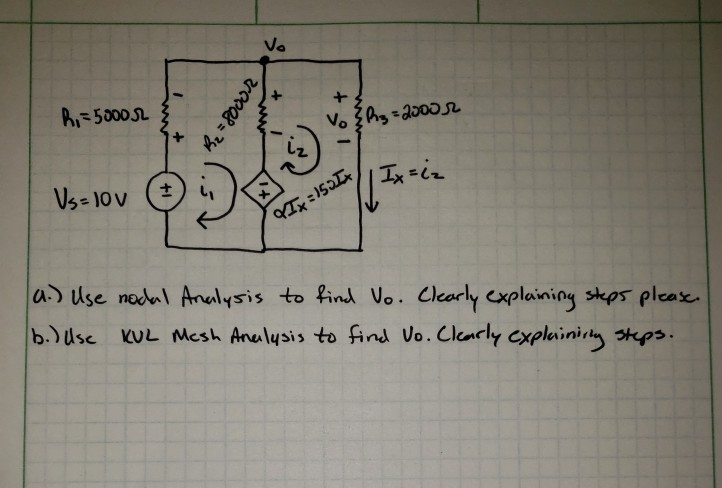 Vo
R₁=5000Ω
R₂=8000Ω
Vo
R₃=2000Ω
i₂
Vs=10V
i₁
αIx=150Ix
Ix=i₂
a.) Use nodal Analysis to find Vo. Clearly explaining steps please.
b.) Use KVL Mesh Analysis to find Vo. Clearly explaining steps.